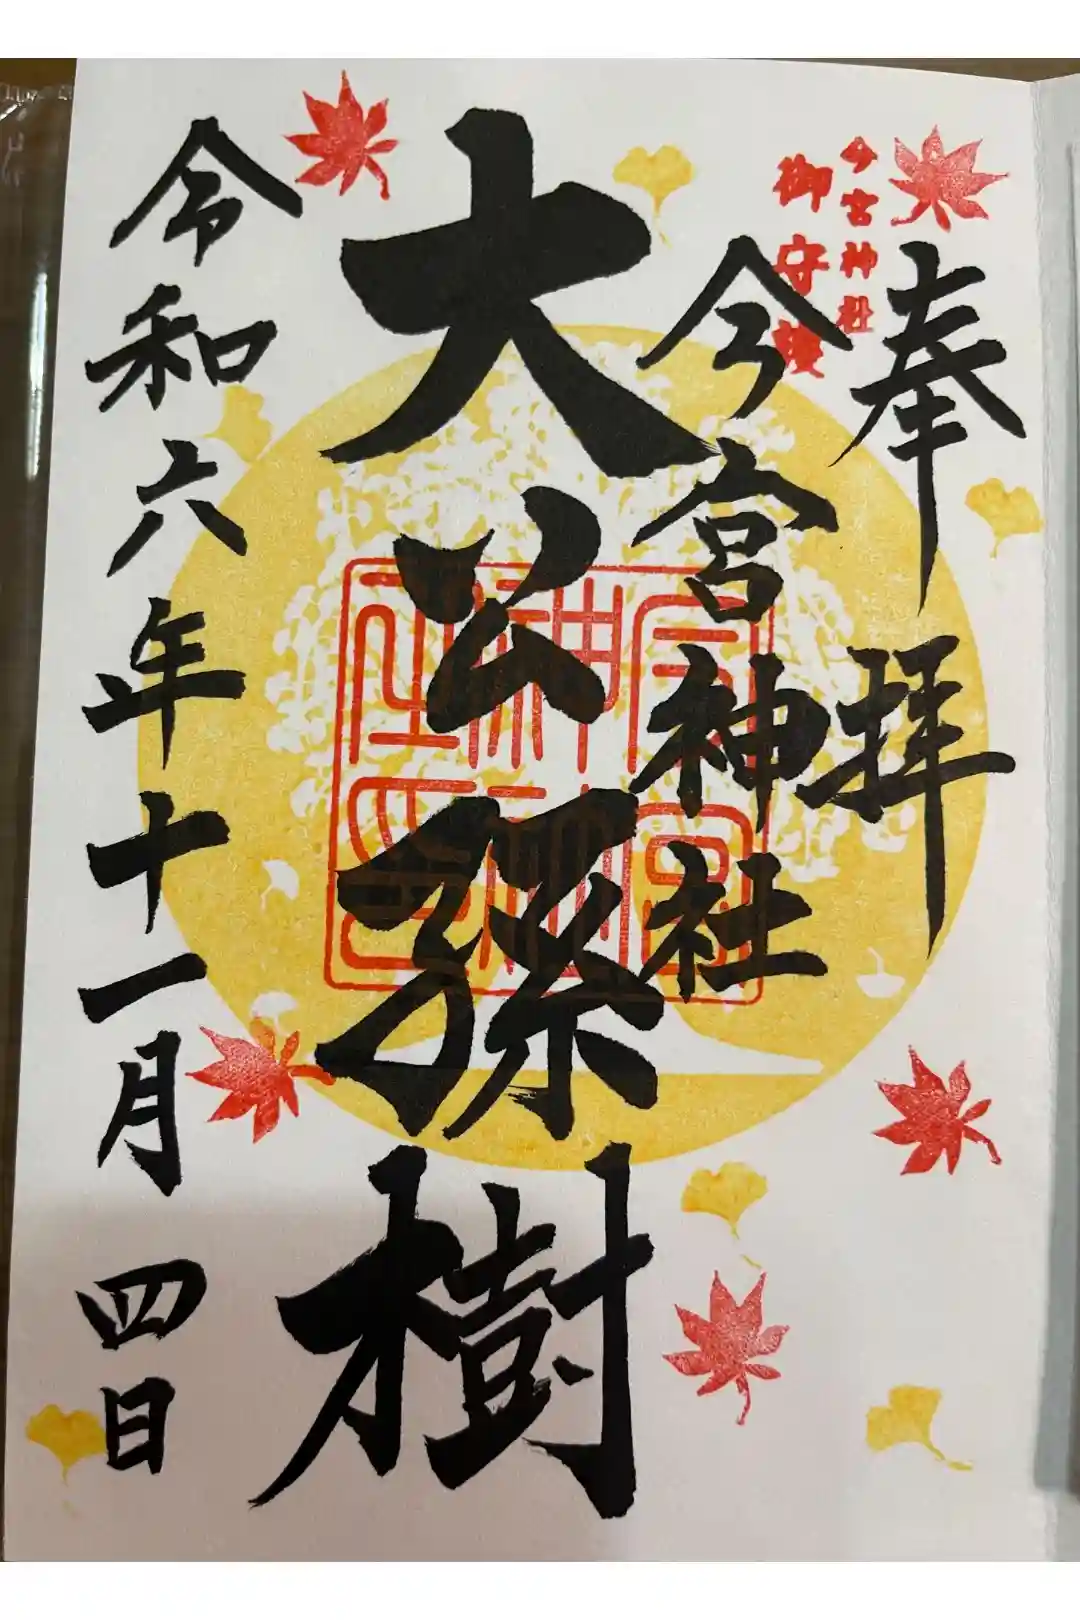 奉拝
今宮神社
御守護
今宮神社
大公孫樹
令和六年十一月四日